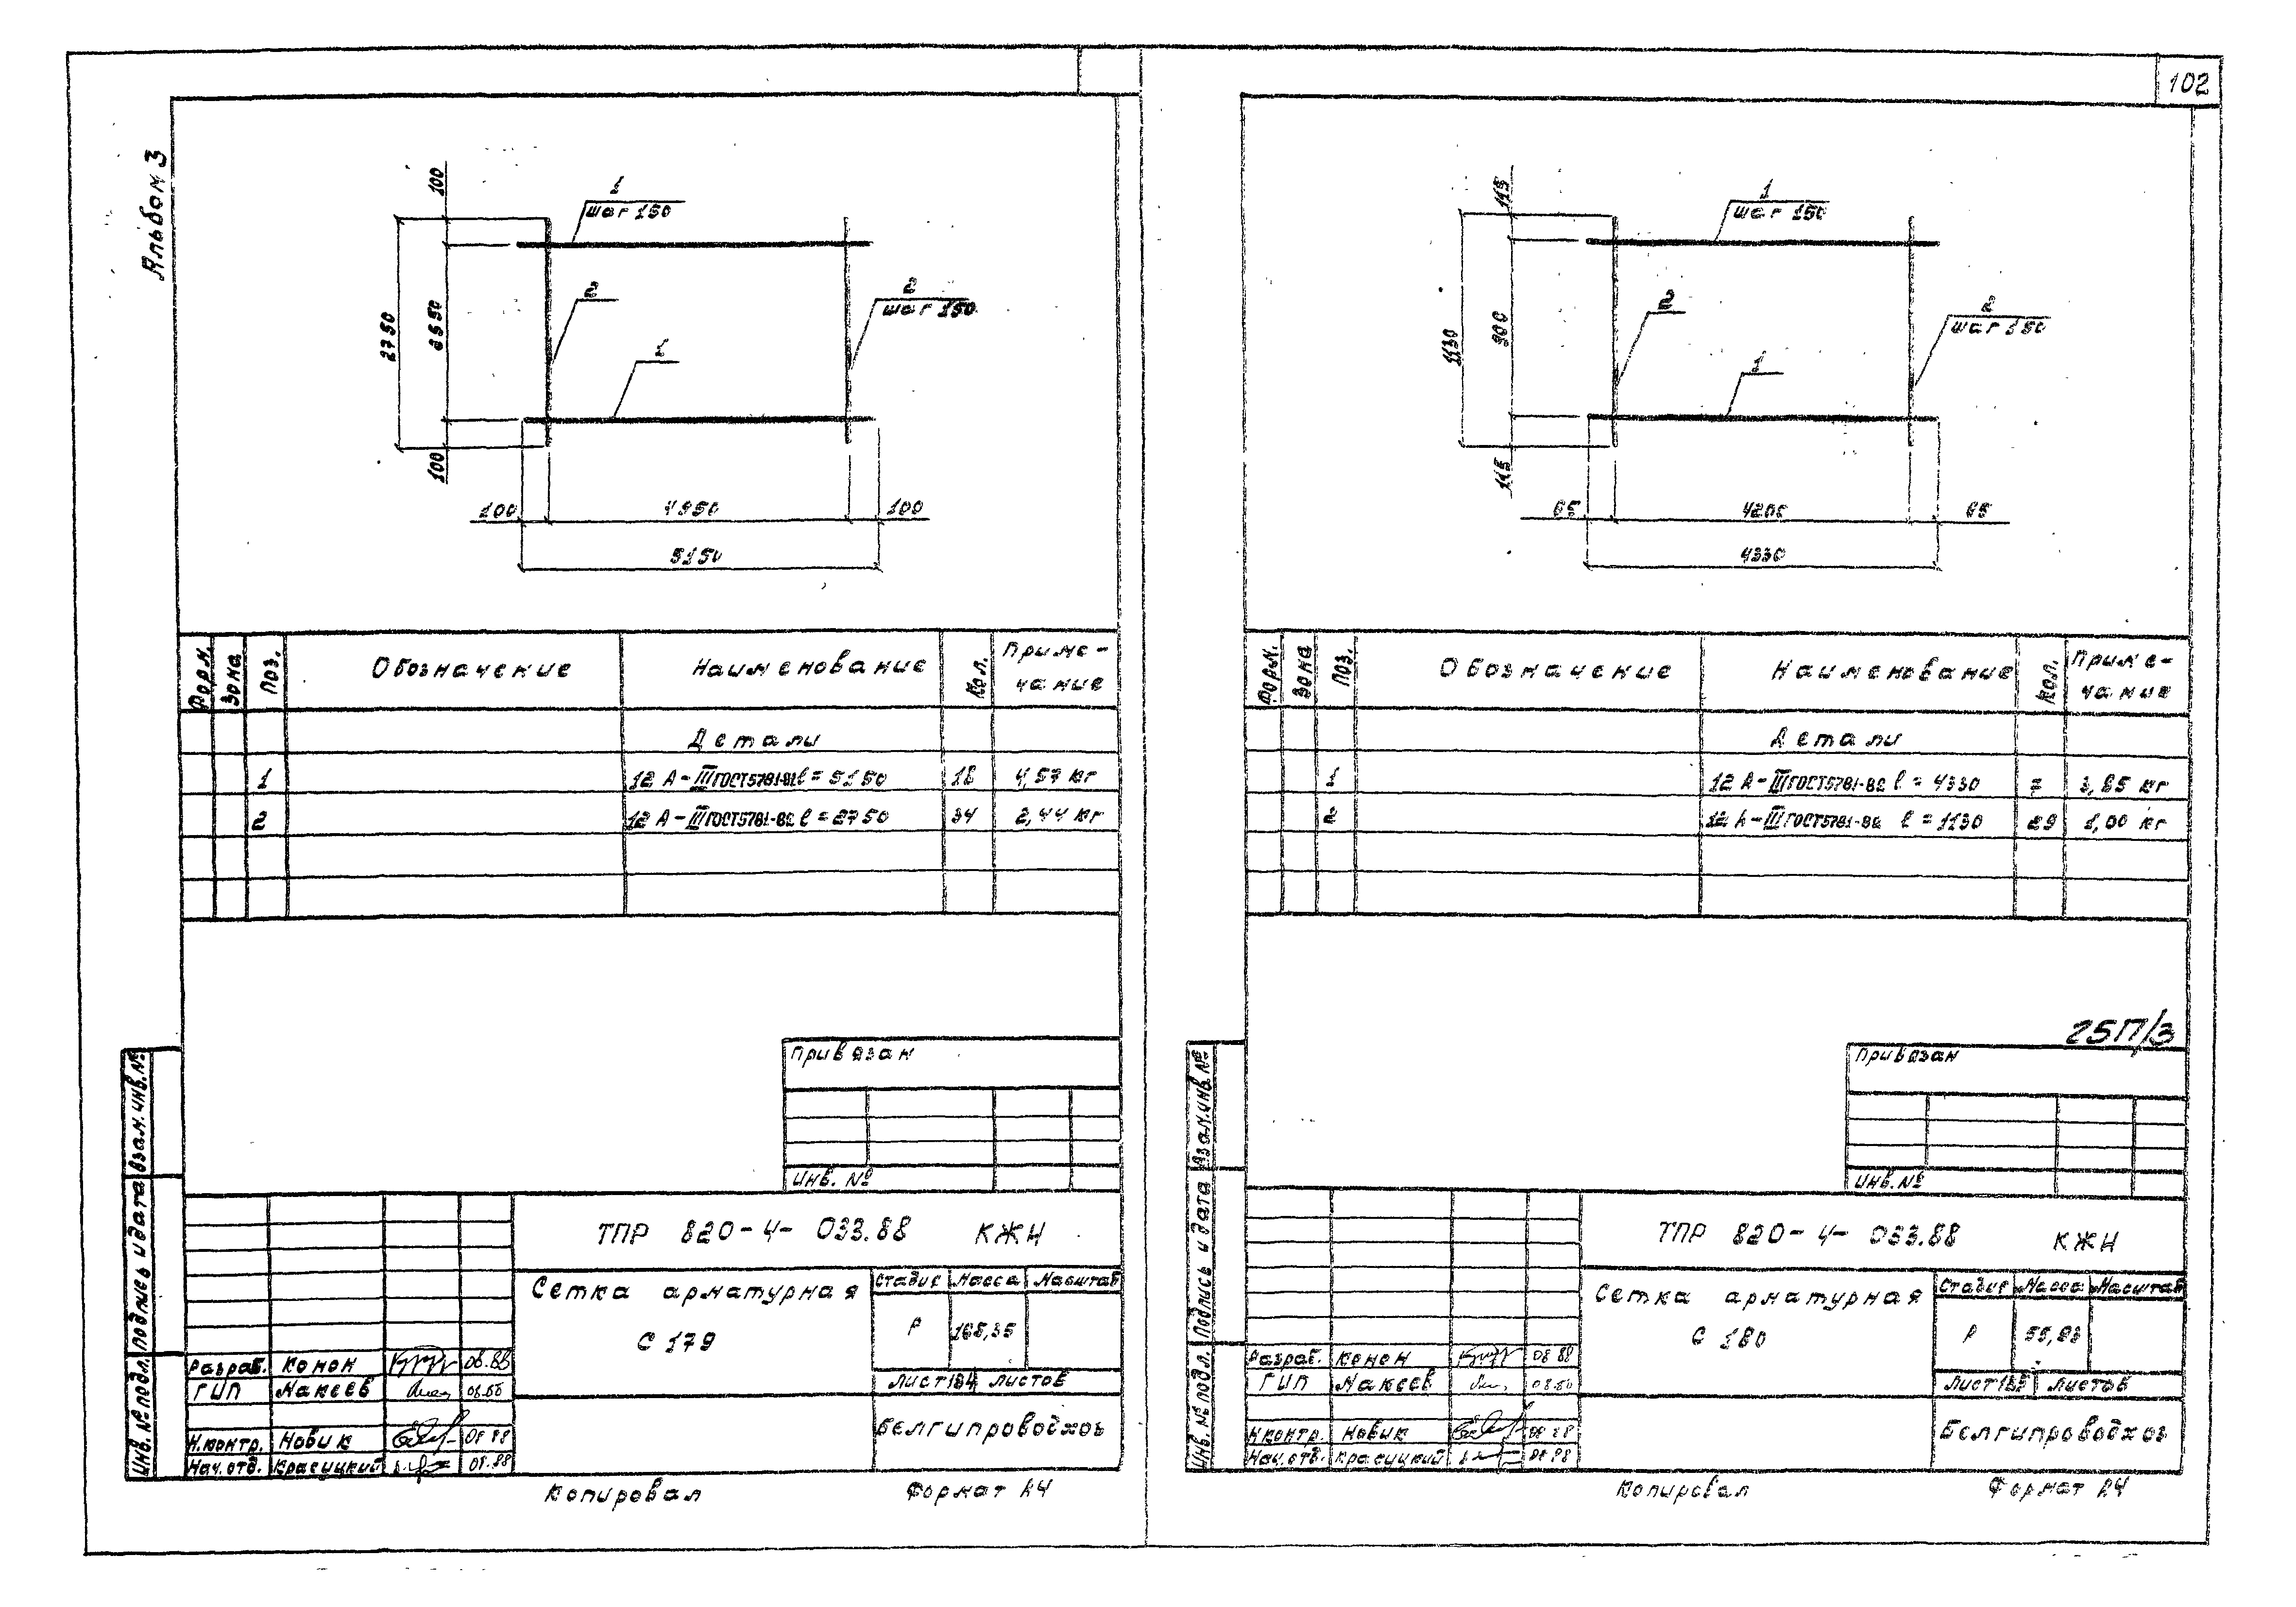 102
Альбом 3
1
шаг 150
2
2
шаг 150
1
100
2750
2550
100
100 4950 100
5150
Форм. Зона Поз. Обозначение Наименование Кол. Приме-
чание
Детали
1 12 А-III ГОСТ5781-82 l = 5150 18 4,57 кг
2 12 А-III ГОСТ5781-82 l = 2750 34 2,44 кг
Привязан
Инв. №
ТПР 820-4-033.88 КЖН
Сетка арматурная
С 179
Стадия Масса Масштаб
Р 165,35
Лист 184 Листов
Белгипроводхоз
Разраб. Конон 08.88
ГИП Макеев 08.88
Н.контр. Новик 08.88
Нач.отд. Красуцкий 08.88
Инв. № подл. Подпись и дата Взам.инв.№
Копировал Формат А4
1
шаг 150
2
2
шаг 150
1
115
1130
900
115
65 4200 65
4330
Форм. Зона Поз. Обозначение Наименование Кол. Приме-
чание
Детали
1 12 А-III ГОСТ5781-82 l = 4330 7 3,85 кг
2 12 А-III ГОСТ5781-82 l = 1130 29 1,00 кг
25П/3
Привязан
Инв. №
ТПР 820-4-033.88 КЖН
Сетка арматурная
С 180
Стадия Масса Масштаб
Р
Лист 185 Листов
Белгипроводхоз
Разраб. Конон 08.88
ГИП Макеев 08.88
Н.контр. Новик 08.88
Нач.отд. Красуцкий 08.88
Инв. № подл. Подпись и дата Взам.инв.№
Копировал Формат А4